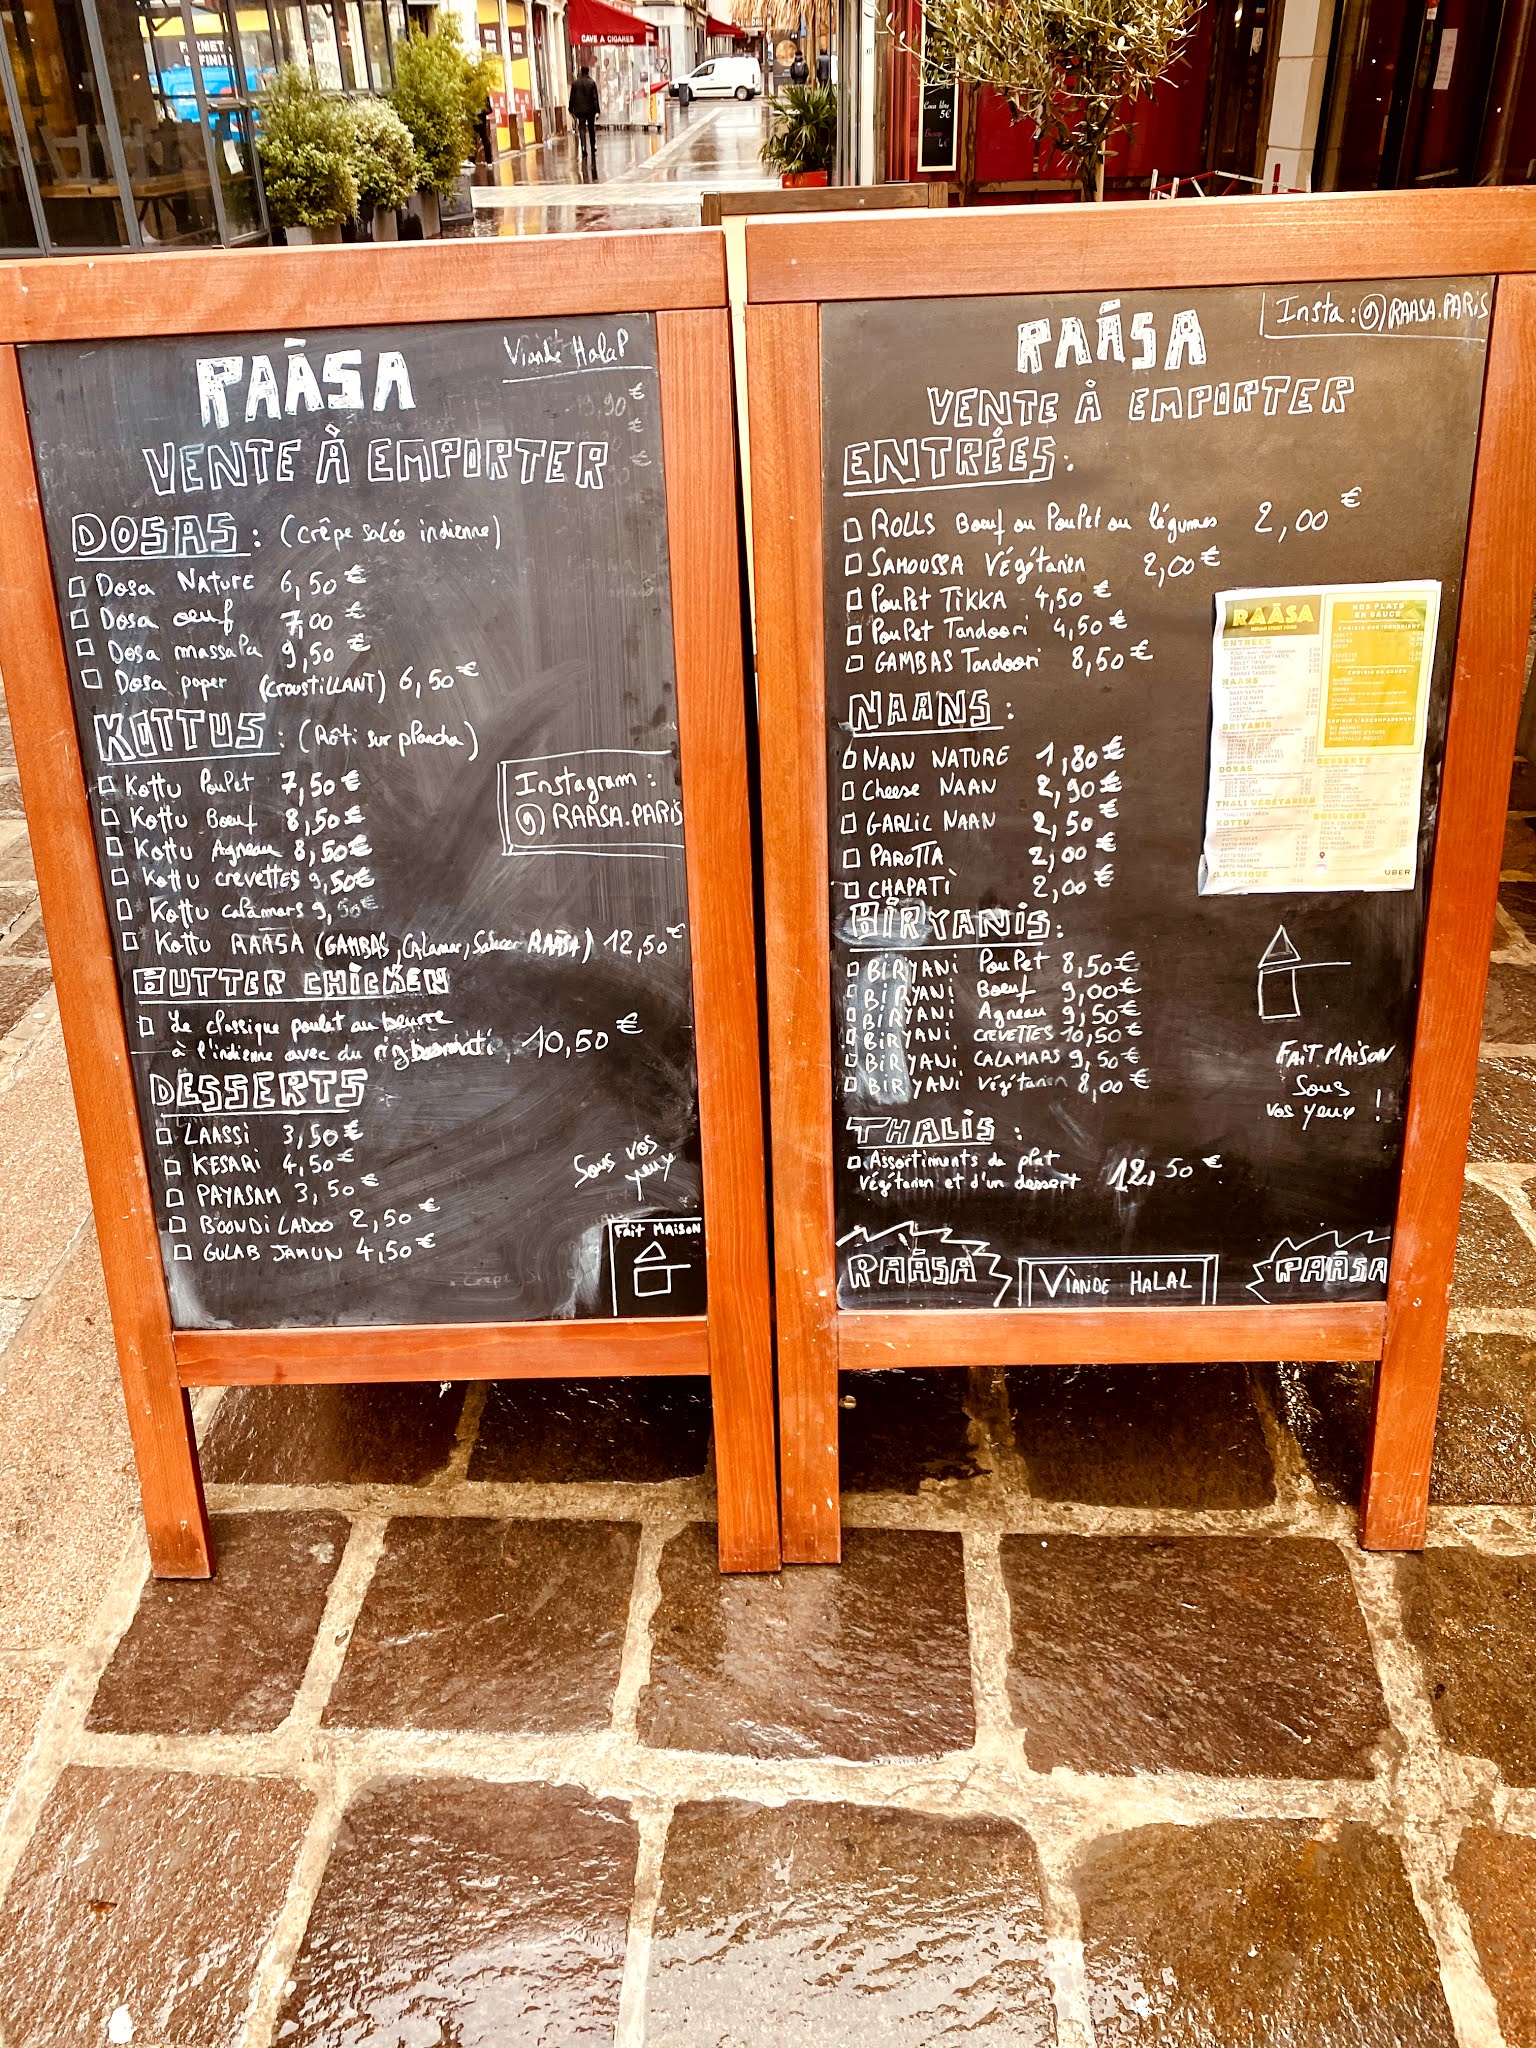 CAVE A CIGARES
RAÂSA
Viande Halal
VENTE À EMPORTER
DOSAS : (crêpe salée indienne)
Dosa NATURE 6,50 €
Dosa oeuf 7,00 €
Dosa massala 9,50 €
Dosa paper (CROUSTILLANT) 6,50 €
KOTTUS : (Rôti sur plancha)
Kottu Poulet 7,50 €
Kottu Boeuf 8,50 €
Kottu Agneau 8,50 €
Kottu crevettes 9,50 €
Kottu calamars 9,50 €
Kottu RAÂSA (GAMBAS, Calamar, RAÂSA) 12,50 €
Instagram :
@RAASA.PARIS
BUTTER CHICKEN
Le classique poulet au beurre
à l'indienne avec du riz basmati, 10,50 €
DESSERTS
LAASSI 3,50 €
KESARI 4,50 €
PAYASAM 3,50 €
BOONDI LADOO 2,50 €
GULAB JAMUN 4,50 €
Sous vos
yeux
FAIT MAISON
Insta : @RAASA.PARIS
RAÂSA
VENTE À EMPORTER
ENTRÉES :
ROLLS Boeuf ou Poulet ou légumes 2,00 €
SAMOUSSA Végétarien 2,00 €
Poulet TIKKA 4,50 €
Poulet Tandoori 4,50 €
GAMBAS Tandoori 8,50 €
NAANS :
NAAN NATURE 1,80 €
Cheese NAAN 2,90 €
GARLIC NAAN 2,50 €
PAROTTA 2,00 €
CHAPATI 2,00 €
BIRYANIS :
BIRYANI Poulet 8,50 €
BIRYANI Boeuf 9,00 €
BIRYANI Agneau 9,50 €
BIRYANI CREVETTES 10,50 €
BIRYANI CALAMARS 9,50 €
BIRYANI Végétarien 8,00 €
THALIS :
Assortiments de plat
végétarien et d'un dessert 12,50 €
FAIT MAISON
Sous
vos yeux !
RAÂSA
VIANDE HALAL
RAÂSA
RAÂSA
ENTRÉES
NAANS
BRIYANIS
DOSAS
THALI VÉGÉTARIEN
KOTTU
CLASSIQUE
NOS PLATS
EN SAUCE
DESSERTS
BOISSONS
UBER